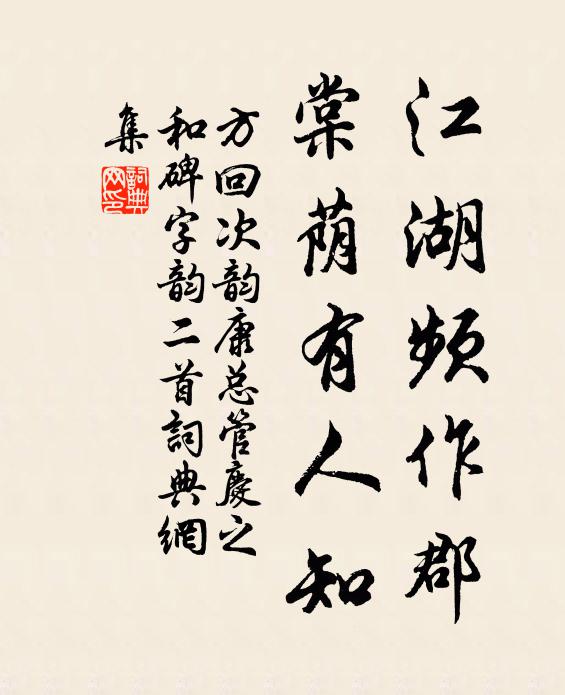 江湖频作郡
棠荫有人知
方回次韵康总管庆之
和碑字韵二首詞典網
集
詞典
网印